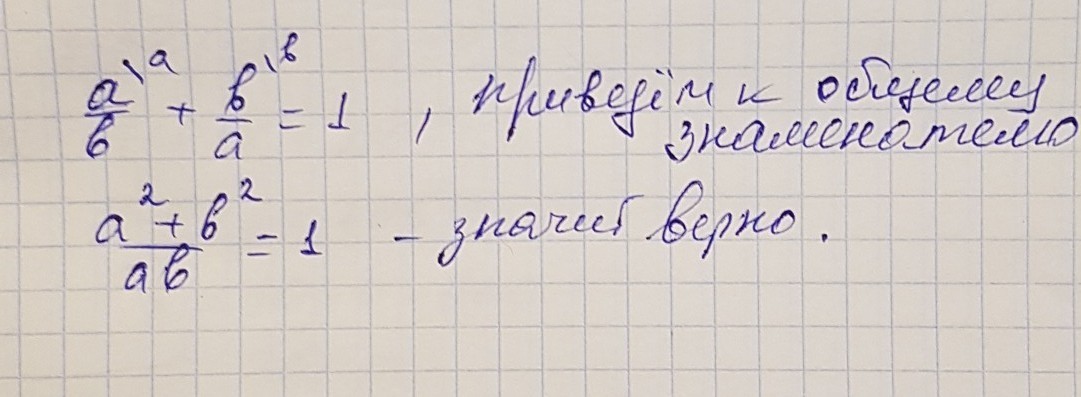 a/в \a + в/a \в = 1 , приведём к общему
знаменателю
a² + в² / aв = 1 – значит верно.